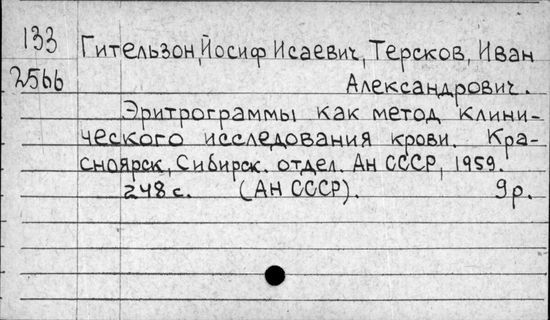 133 Гительзон, Йосиф Исаевич, Терсков, Иван
2566 Александрович.
Эритрограммы как метод клини-
ческого исследования крови. Кра-
сноярск, Сибирск. отдел. Ан СССР, 1959.
248 с. (АН СССР). 9 р.